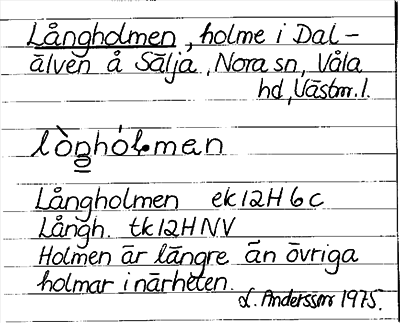 Långholmen, holme i Dal-
älven å Sälja, Nora sn, Våla
hd, Västm. l.
lòŋhól•mɐn
Långholmen ek 12H 6 c
Långh. tk 12H NV
Holmen är längre än övriga
holmar i närheten.
L. Andersson 1975.